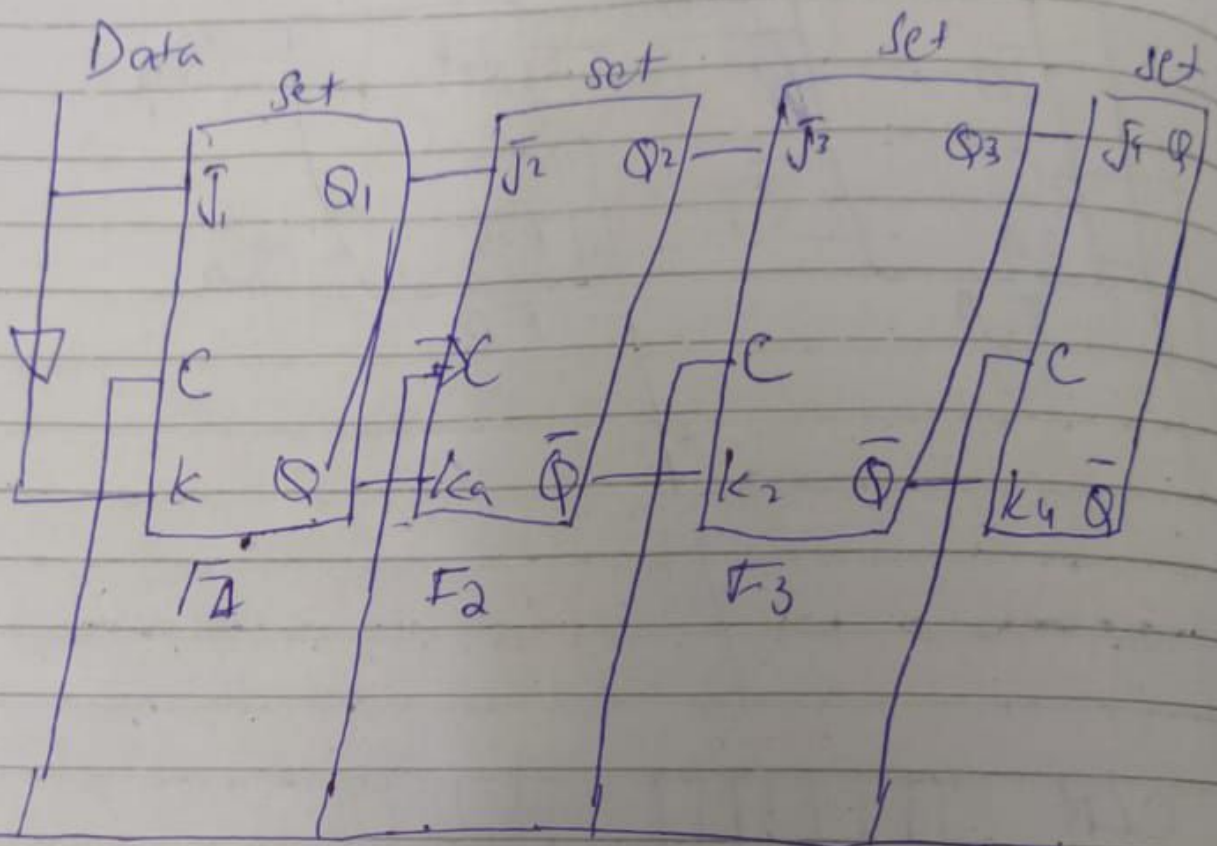 Data
set set set set
J1 Q1 J2 Q2 J3 Q3 J4 Q
C C C C
K Q K2 Q̅ K2 Q̅ K4 Q̅
F2 F3